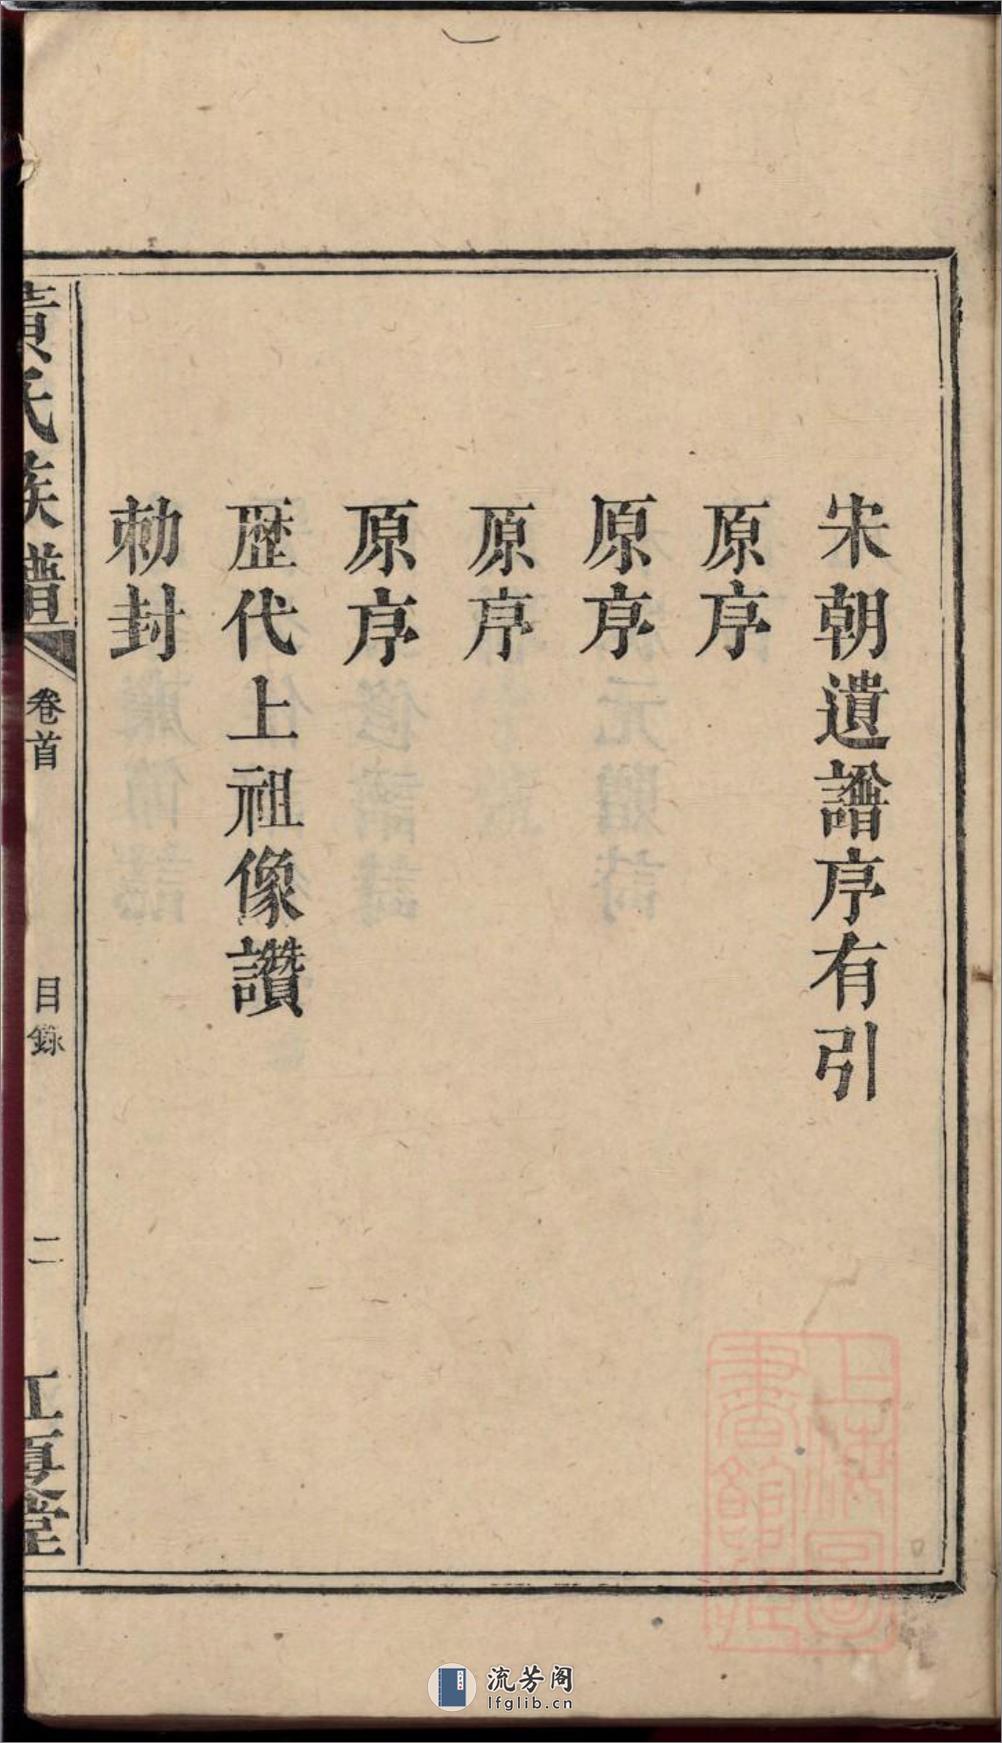 宋朝遺譜序有引
原序
原序
原序
原序
歴代上祖像讚
勅封
黃氏族譜
卷首
目錄
二
江夏堂
上海圖
書館藏
流芳阁
lfglib.cn